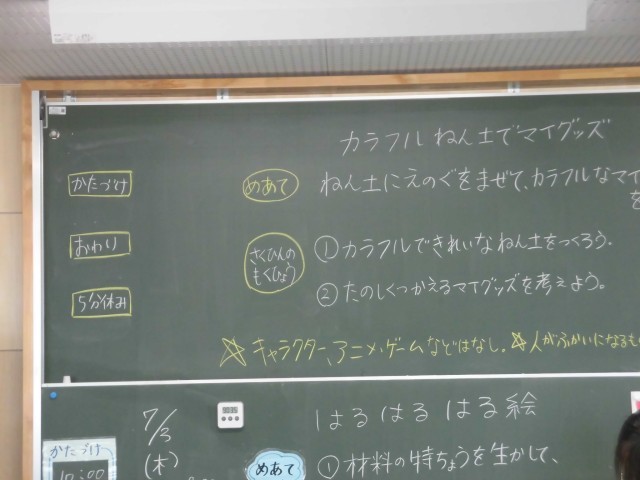 カラフルねん土でマイグッズ
かたづけ
めあて
ねん土にえのぐをまぜて、カラフルなマイ
を
おわり
さくひんの
もくひょう
①カラフルできれいなねん土をつくろう。
②たのしくつかえるマイグッズを考えよう。
5分休み
☆キャラクター、アニメ、ゲームなどはなし。☆人がふかいになるもの
7/3
(木)
はるはるはる絵
かたづけ
10:00
めあて
①材料の特ちょうを生かして、